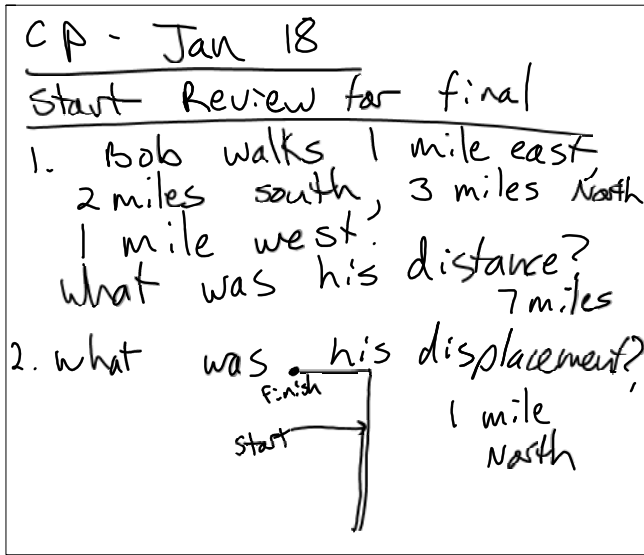 CP - Jan 18
Start Review for final
1. Bob walks 1 mile east,
2 miles south, 3 miles North
1 mile west.
what was his distance?
7 miles
2. what was his displacement?
Finish
1 mile
Start
North